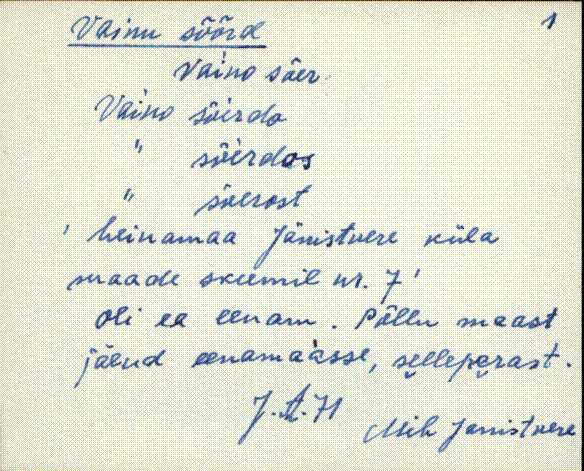 Vainu sõõrd 1
Vaino sõer
Vaino sõirdo
" sõirdos
" sõerost
' heinamaa Jänistvere küla
maade skeemil nr. 7'
oli ea eenam. Põllu maast
jäeud eenamaasse, selleperast.
J. A. 71
Mih Janistvere